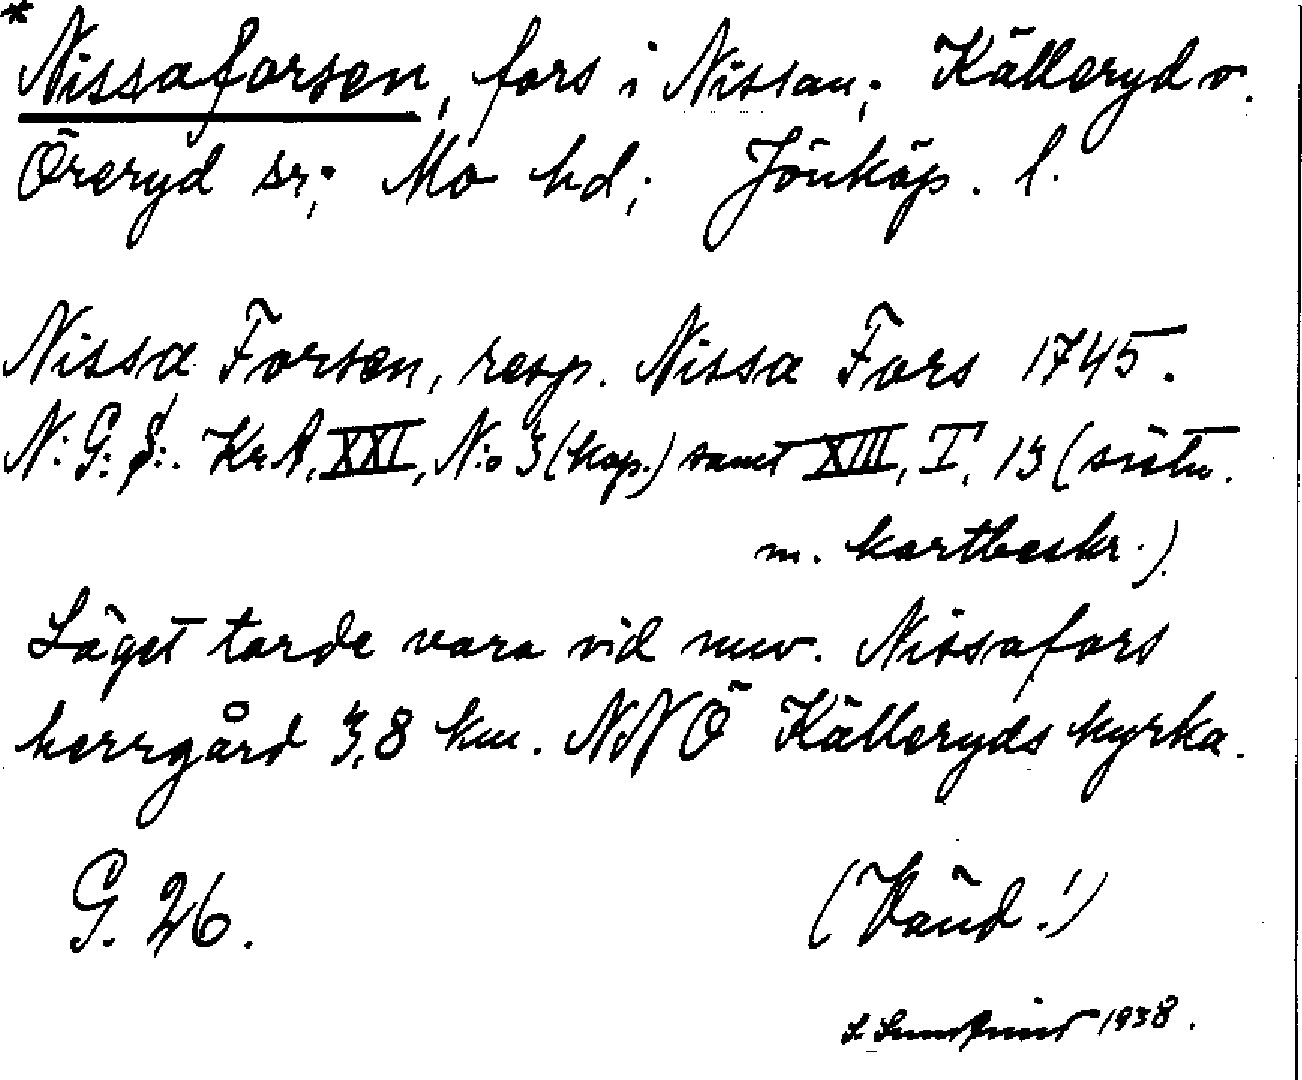 *
Nissaforsen, fors i Nissan; Källeryd o.
Öreryd sr; Mo hd; Jönköp. l.
Nissa Forsen, resp. Nissa Fors 1745.
N: G: S:. KrA, XXI, N:o 3 (kop.) samt XIII, I, 13 (sistn.
m. kartbeskr.)
Läget torde vara vid nuv. Nissafors
herrgård 3,8 km. NNÖ Källeryds kyrka.
G. 26.
(Vänd!)
1938.